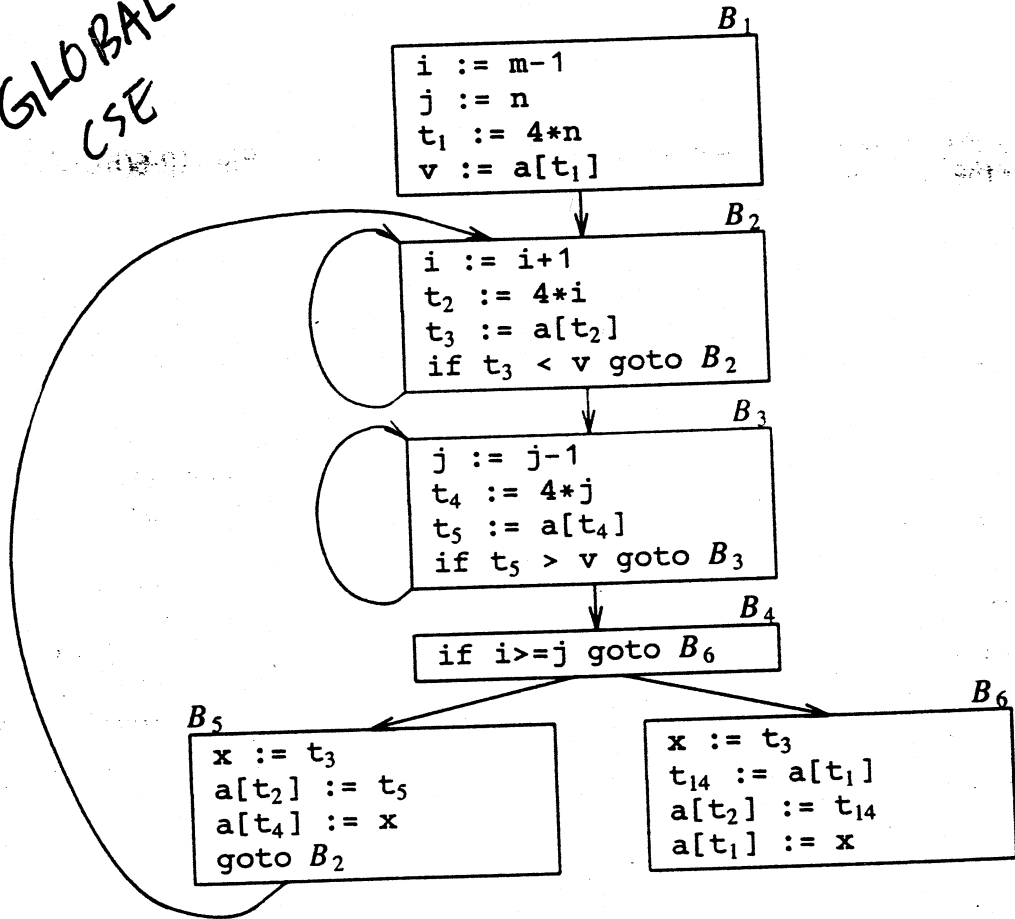 GLOBAL
CSE
B₁
i := m-1
j := n
t₁ := 4*n
v := a[t₁]
B₂
i := i+1
t₂ := 4*i
t₃ := a[t₂]
if t₃ < v goto B₂
B₃
j := j-1
t₄ := 4*j
t₅ := a[t₄]
if t₅ > v goto B₃
B₄
if i>=j goto B₆
B₅
x := t₃
a[t₂] := t₅
a[t₄] := x
goto B₂
B₆
x := t₃
t₁₄ := a[t₁]
a[t₂] := t₁₄
a[t₁] := x